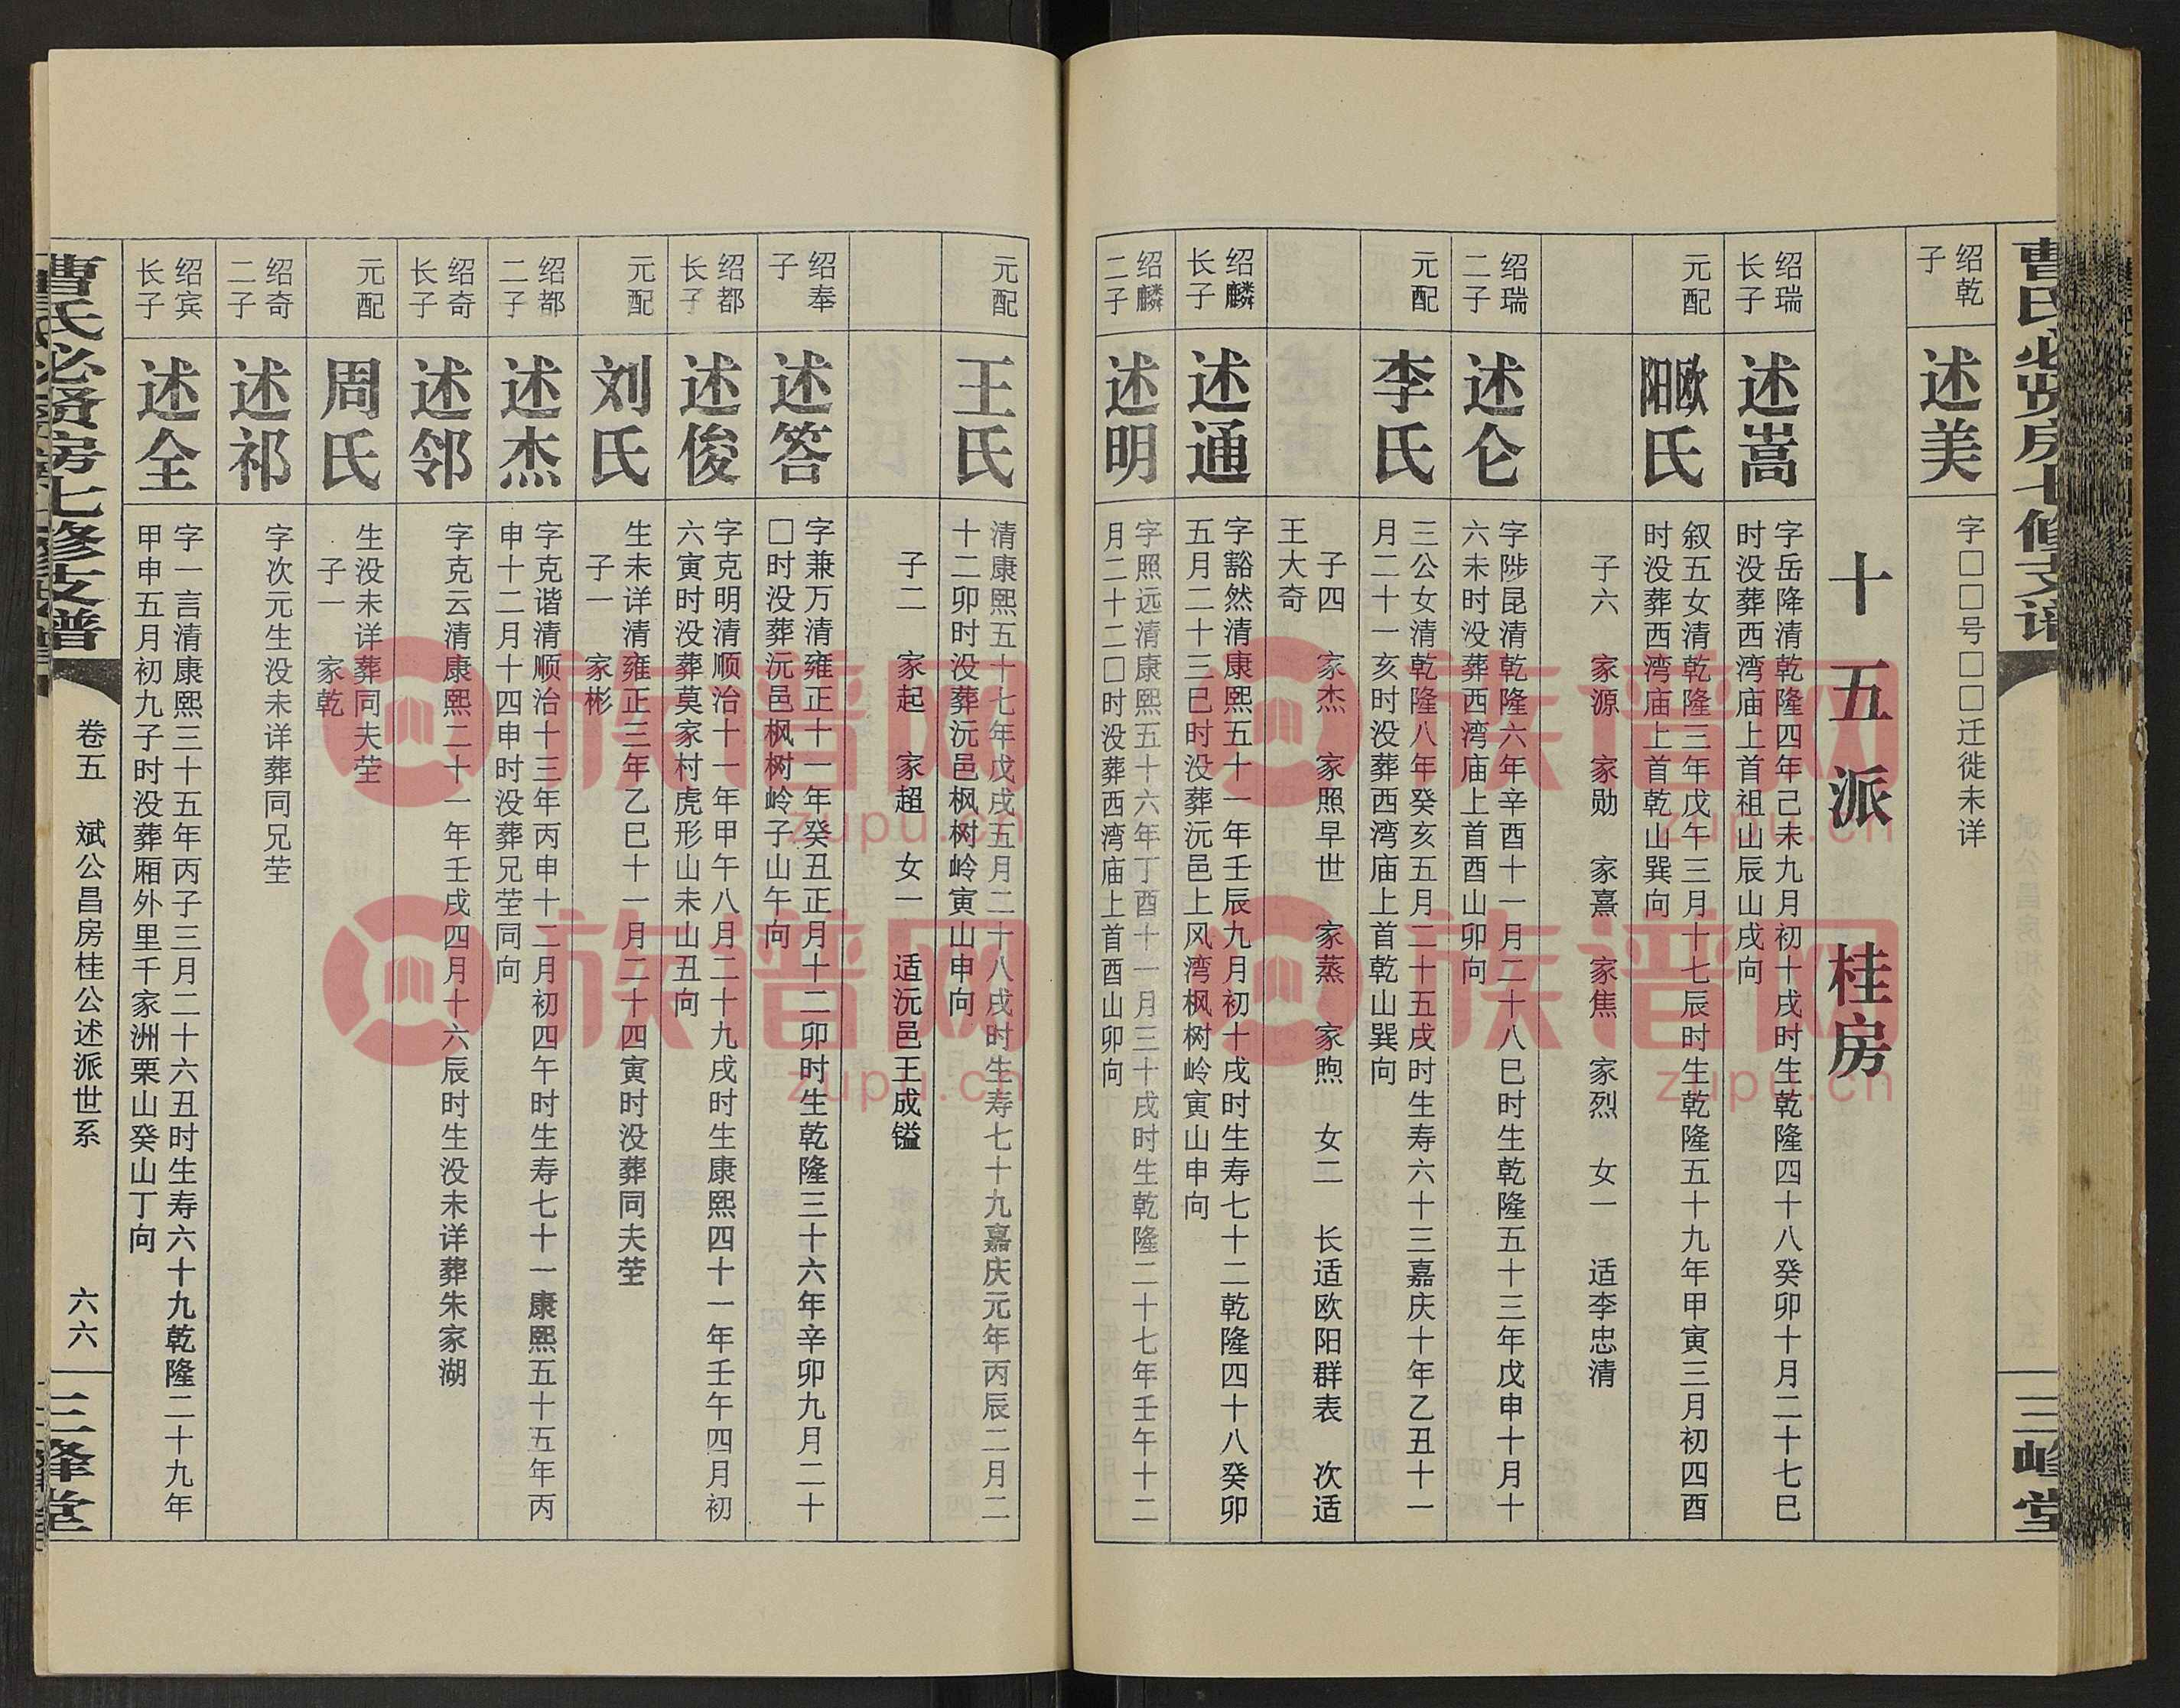 曹氏必贤房七修支谱
三峰堂
绍乾
子
述美
字□□号□□迁徙未详
十五派 桂房
绍瑞
长子
述嵩
字岳降清乾隆四年己未九月初十戌时生乾隆四十八癸卯十月二十七巳
时没葬西湾庙上首祖山辰山戌向
元配
欧阳氏
叙五女清乾隆三年戊午三月十七辰时生乾隆五十九年甲寅三月初四酉
时没葬西湾庙上首乾山巽向
子六 家源 家勋 家熹 家焦 家烈 女一 适李忠清
绍瑞
二子
述仑
字陟昆清乾隆六年辛酉十一月二十八巳时生乾隆五十三年戊申十月十
六未时没葬西湾庙上首酉山卯向
元配
李氏
三公女清乾隆八年癸亥五月二十五戌时生寿六十三嘉庆十年乙丑十一
月二十一亥时没葬西湾庙上首乾山巽向
子四 家杰 家照早世 家蒸 家煦 女二 长适欧阳群表 次适
王大奇
绍麟
长子
述通
字豁然清康熙五十一年壬辰九月初十戌时生寿七十二乾隆四十八癸卯
五月二十三巳时没葬沅邑上风湾枫树岭寅山申向
绍麟
二子
述明
字照远清康熙五十六年丁酉十一月三十戌时生乾隆二十七年壬午十二
月二十二□时没葬西湾庙上首酉山卯向
元配
王氏
清康熙五十七年戊戌五月二十八戌时生寿七十九嘉庆元年丙辰二月二
十二卯时没葬沅邑枫树岭寅山申向
子二 家起 家超 女一 适沅邑王成镒
绍奉
子
述答
字兼万清雍正十一年癸丑正月十二卯时生乾隆三十六年辛卯九月二十
□时没葬沅邑枫树岭子山午向
绍都
长子
述俊
字克明清顺治十一年甲午八月二十九戌时生康熙四十一年壬午四月初
六寅时没葬莫家村虎形山未山丑向
元配
刘氏
生未详清雍正三年乙巳十一月二十四寅时没葬同夫茔
子一 家彬
绍都
二子
述杰
字克谐清顺治十三年丙申十二月初四午时生寿七十一康熙五十五年丙
申十二月十四申时没葬兄茔同向
绍奇
长子
述邻
字克云清康熙二十一年壬戌四月十六辰时生没未详葬朱家湖
元配
周氏
生没未详葬同夫茔
子一 家乾
绍奇
二子
述祁
字次元生没未详葬同兄茔
绍宾
长子
述全
字一言清康熙三十五年丙子三月二十六丑时生寿六十九乾隆二十九年
甲申五月初九子时没葬厢外里千家洲栗山癸山丁向
曹氏必贤房七修支谱
卷五 斌公昌房桂公述派世系
六六
三峰堂
族谱网
zupu.cn
族谱网
zupu.cn
族谱网
zupu.cn
族谱网
zupu.cn